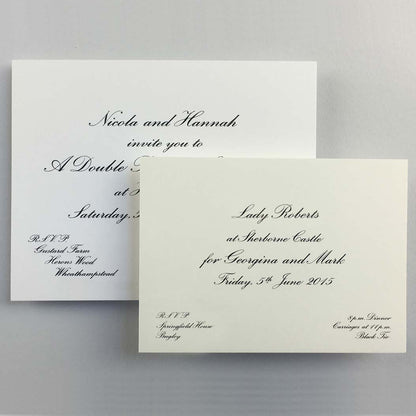 Nicola and Hannah
invite you to
A Double
at
Saturday,
R.S.V.P
Gustard Farm
Herons Wood
Wheathampstead
Lady Roberts
at Sherborne Castle
for Georgina and Mark
Friday, 5th June 2015
R.S.V.P
Springfield House
Bugley
8p.m. Dinner
Carriages at 11p.m.
Black Tie